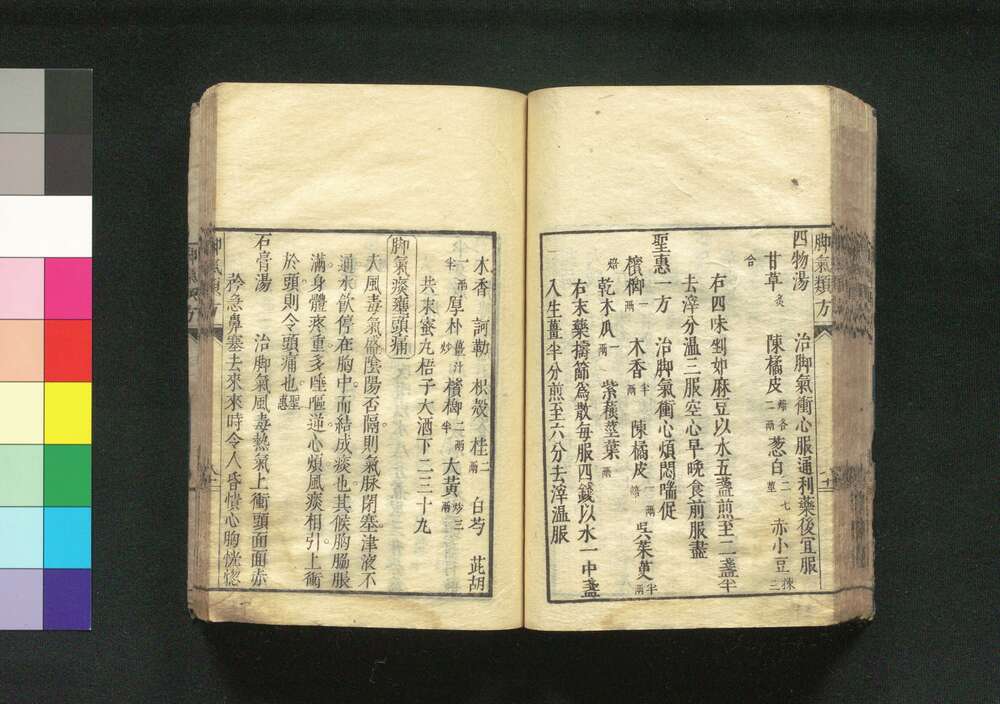 脚氣類方
四物湯　治脚氣衝心服通利藥後宜服
甘草炙　陳橘皮焙各二兩　葱白二七莖　赤小豆揀三
合
右四味剉如麻豆以水五盞煎至二盞半
去滓分溫三服空心早晚食前服盡
聖惠一方　治脚氣衝心煩悶喘促
檳榔一兩　木香半兩　陳橘皮一兩焙　吳茱萸半兩
焙　乾木瓜一兩　紫蘇莖葉一兩
右末藥擣篩爲散每服四錢以水一中盞
入生薑半分煎至六分去滓温服
木香　訶勒　枳殼　桂二兩　白芍　茈胡
一兩半　厚朴薑汁炒　檳榔二兩半　大黃炒三兩
共末蜜丸梧子大酒下二三十九
脚氣痰壅頭痛
夫風毒氣
陰陽否隔則氣脉閉塞津液不
通水飮停在胸中而結成痰也其候胸膈脹
滿身體疼重多唾嘔逆心煩風痰相引上衝
於頭則令頭痛也聖惠
石膏湯　治脚氣風毒熱氣上衝頭面面赤
矜急鼻塞去來來時令人昏憒心胸恍惚
脚氣類方